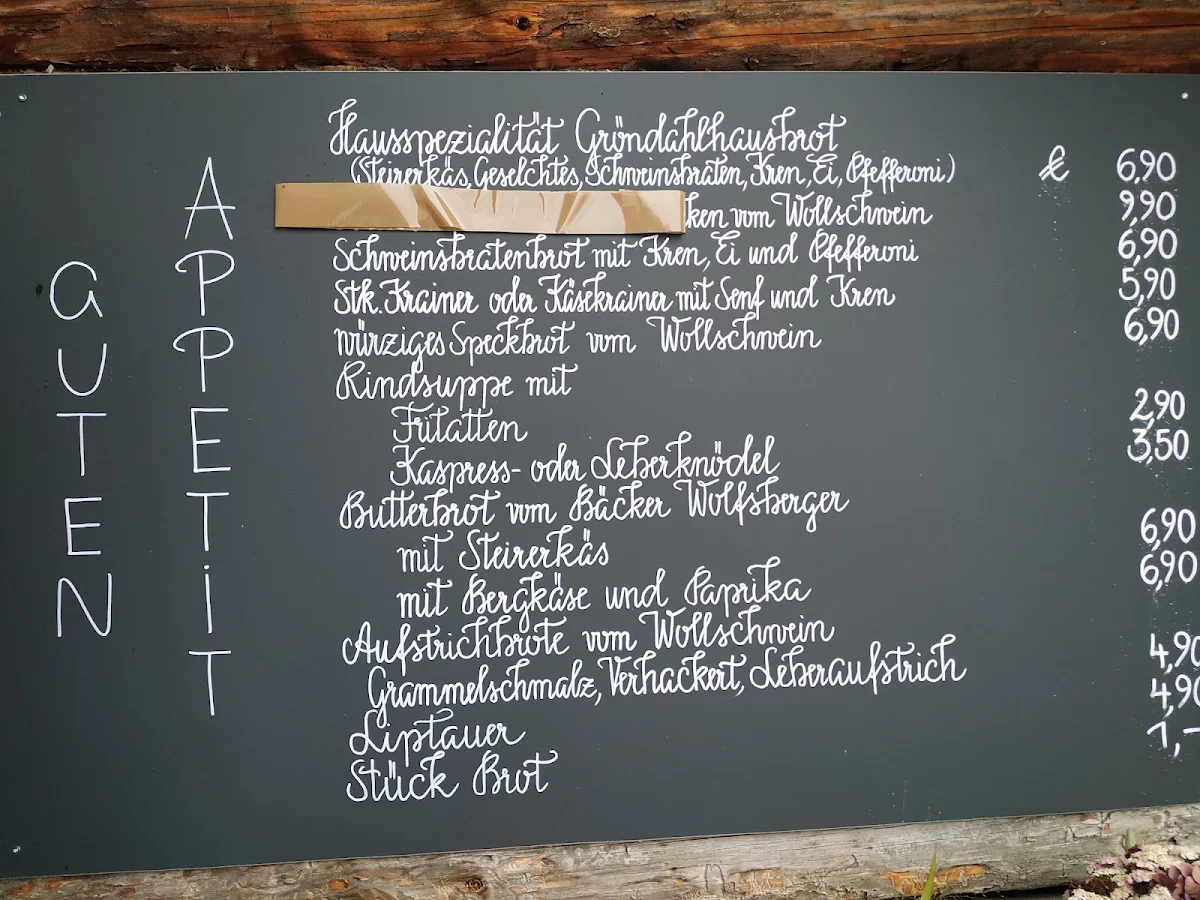 GUTEN
APPETiT
Hausspezialität Gröndahlhausbrot
(Steirerkäs, Geselchtes, Schweinsbraten, Kren, Ei, Pfefferoni) € 6,90
ken vom Wollschwein 9,90
Schweinsbratenbrot mit Kren, Ei und Pfefferoni 6,90
Stk. Krainer oder Käsekrainer mit Senf und Kren 5,90
würziges Speckbrot vom Wollschwein 6,90
Rindsuppe mit
Fritatten 2,90
Kaspress- oder Leberknödel 3,50
Butterbrot vom Bäcker Wolfsberger
mit Steirerkäs 6,90
mit Bergkäse und Paprika 6,90
Aufstrichbrote vom Wollschwein
Grammelschmalz, Verhackert, Leberaufstrich 4,90
Liptauer 4,90
Stück Brot 1,-